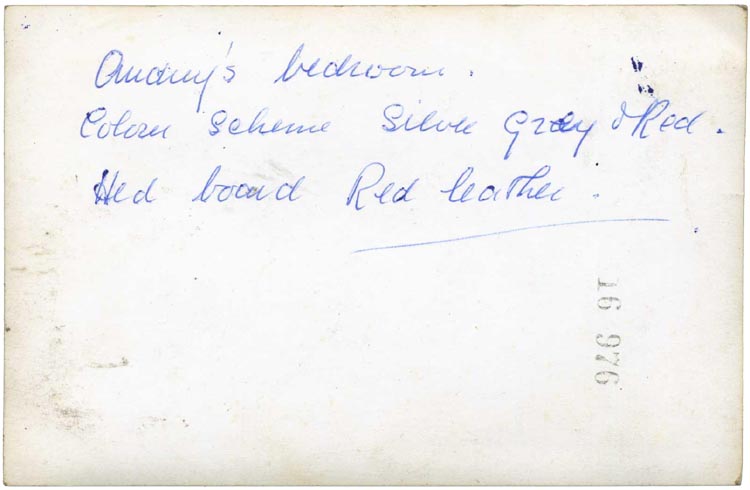 bedroom.
Colour Scheme Silver Grey & Red.
Hed board Red leather.
16 976